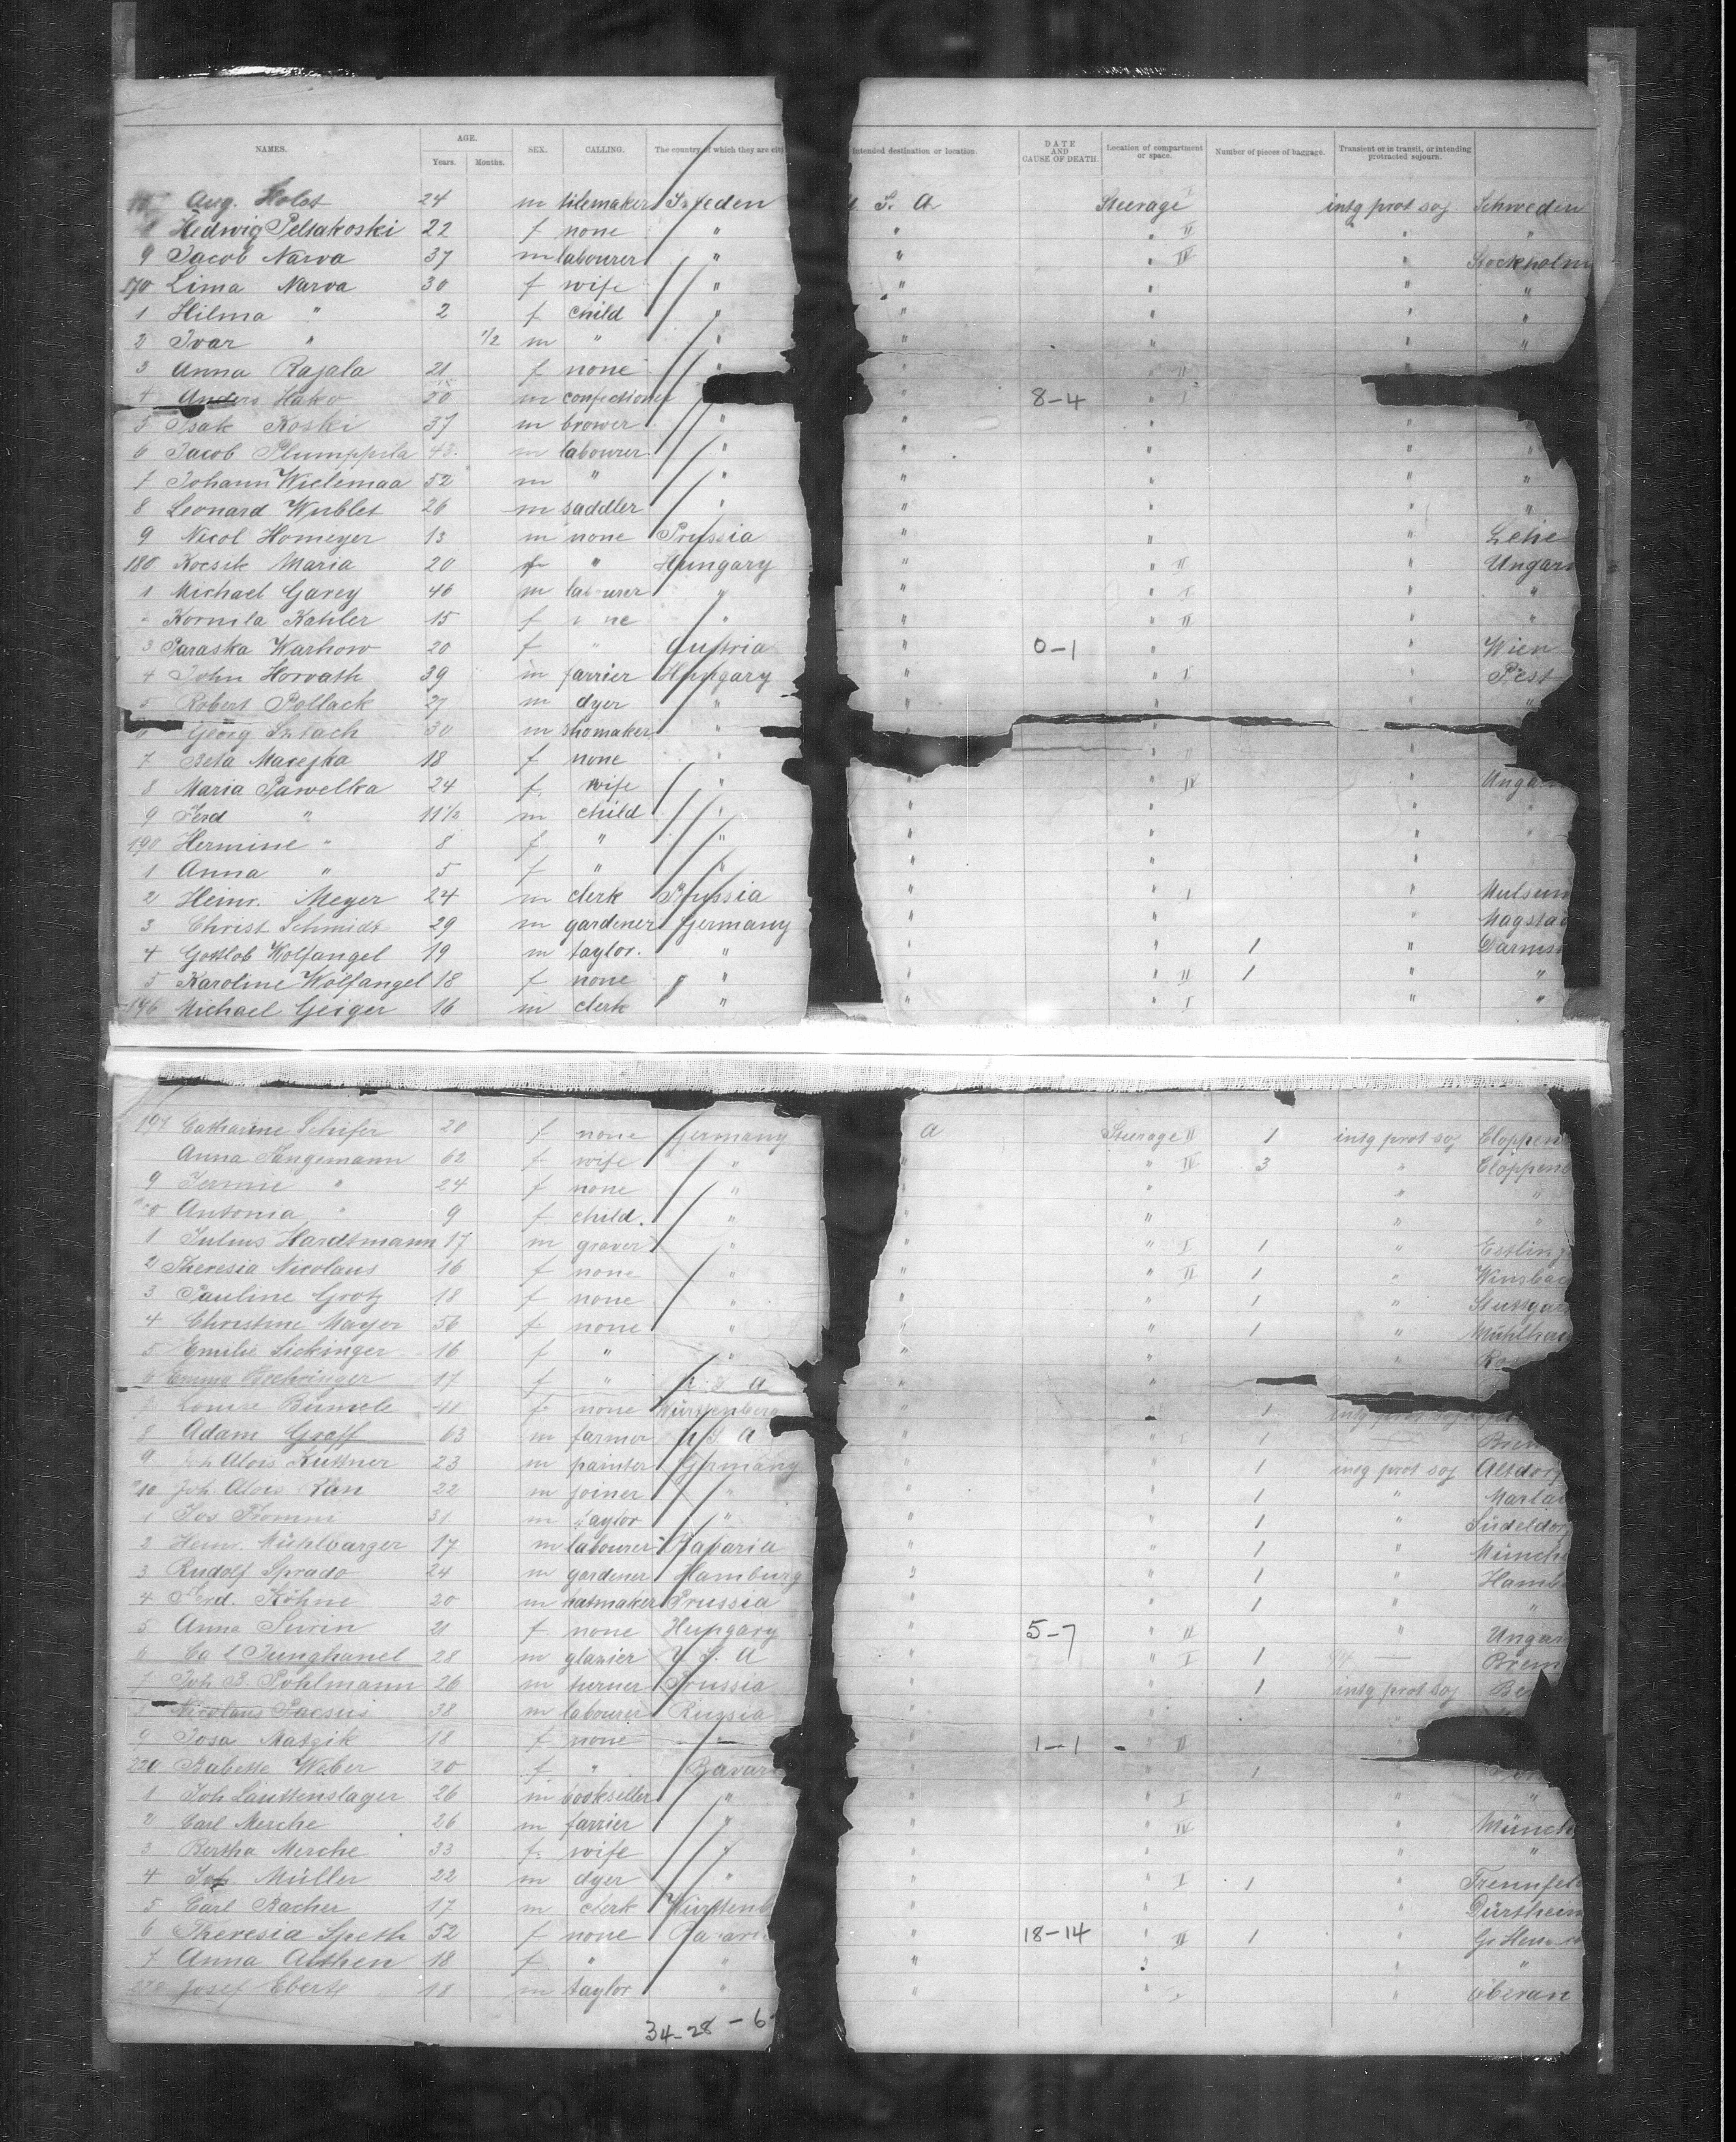 NAMES. AGE. Years. Months. SEX. CALLING. The country of which they are citi Intended destination or location. DATE AND CAUSE OF DEATH. Location of compartment or space. Number of pieces of baggage. Transient or in transit, or intending protracted sojourn.
Aug. Holst 24 m tilemaker Sweden S. A. Steerage I intg prot soj Schweden
Hedwig Peltakoski 22 f none " " " II " "
9 Jacob Narva 37 m labourer " " " IV " Stockholm
170 Lima Narva 30 f wife " " " " "
1 Hilma " 2 f child " " " " "
2 Ivar " 1/2 m " " " " " "
3 Anna Rajala 21 f none " " " II "
4 Anders Hako 20 m confectioner " 8-4 " I
5 Isak Koski 37 m brower " " " " "
6 Jacob Plumppila m labourer " " " " "
7 Johann Wielemaa 52 m " " " " " "
8 Leonard Wublet 26 m saddler " " " " "
9 Nicol Homeyer 13 m none Prussia " " " Lehe
180 Kocsik Maria 20 f " Hungary " " II " Ungarn
1 Michael Garey 46 m labourer " " " I " "
Kornila Kahler 15 f none " " " II " "
3 Paraska Warhow 20 f " Austria " 0-1 " " Wien
4 John Horvath 39 m farrier Hungary " " I " Pest
5 Robert Pollack 27 m dyer " " " " "
6 Georg Sztach 30 m shomaker " "
7 Beta Macejka 18 f none " " II "
8 Maria Pawelka 24 f. wife " " " IV " Ungarn
9 Ferd " 11 1/2 m child " " " " "
190 Hermine " 8 f. " " " " " "
1 Anna " 5 f " " " " "
2 Heinr. Meyer 24 m clerk Prussia " " I " Mulsum
3 Christ Schmidt 29 m gardener Germany " " " Magstad
4 Gottlob Wolfangel 19 m taylor. " " " 1 " Darms
5 Karoline Wolfangel 18 f none " " " II 1 " "
196 Michael Geiger 16 m clerk " " " I " "
197 Catharine Schifer 20 f none Germany A Steerage II 1 intg prot soj Cloppen
Anna Tangemann 62 f wife " " " IV 3 " Cloppenb
9 Fermie " 24 f none " " " " "
Antonia " 9 f child. " " " " "
1 Julius Hardtmann 17 m graver " " " I 1 " Esslinge
2 Theresia Nicolaus 16 f none " " " II 1 " Winsbac
3 Pauline Grotz 18 f none " " " 1 " Stuttgar
4 Christine Mayer 56 f none " " " 1 " Mühlhau
5 Emilie Sickinger 16 f " " " " "
6 Emma Boehringer 17 f " U. S. A " "
7 Louise Bumele f none Württemberg " 1 intg prot soj
8 Adam Greff 63 m farmer U. S. A " " I 1 Brem
9 Joh Alois Küttner 23 m painter Germany " " 1 intg prot soj Altdorf
210 Joh. Alois Kan 22 m joiner " " " 1 "
1 Jos Fromm 31 m taylor " " " 1 "
2 Heinr. Mühlbarger 17 m labourer Bavaria " " 1 " Münche
3 Rudolf Sprado 24 m gardener Hamburg " " 1 " Hamb
4 Ferd. Köhne 20 m hatmaker Prussia " " 1 " "
5 Anna Surin 21 f none Hungary " 5-7 " II " Ungar
6 Ca l Junghanel 28 m glazier U. S. A " " I 1 Brem
7 Joh B Pohlmann 26 m turner Prussia " " 1 intg prot soj Be
8 Nicolaus Pacsus 38 m labourer Russia " "
9 Josa Matzik 18 f none " 1-1 " II
220 Babette Weber 20 f " Bavari " " 1
1 Joh Lauttenslager 26 m bookseller " " " I " "
2 Carl Merche 26 m farrier " " " IV " Münch
3 Bertha Merche 33 f. wife " " " " "
4 Joh Müller 22 m dyer " " " I 1 " Trennfel
5 Carl Bacher 17 m clerk Württemb " " " Dürtheim
6 Theresia Speth 52 f none Bavari " 18-14 " II 1 "
7 Anna Althen 18 f. " " " " " "
Josef Eberle 18 m taylor " " " I " Oberan
34-28 - 6